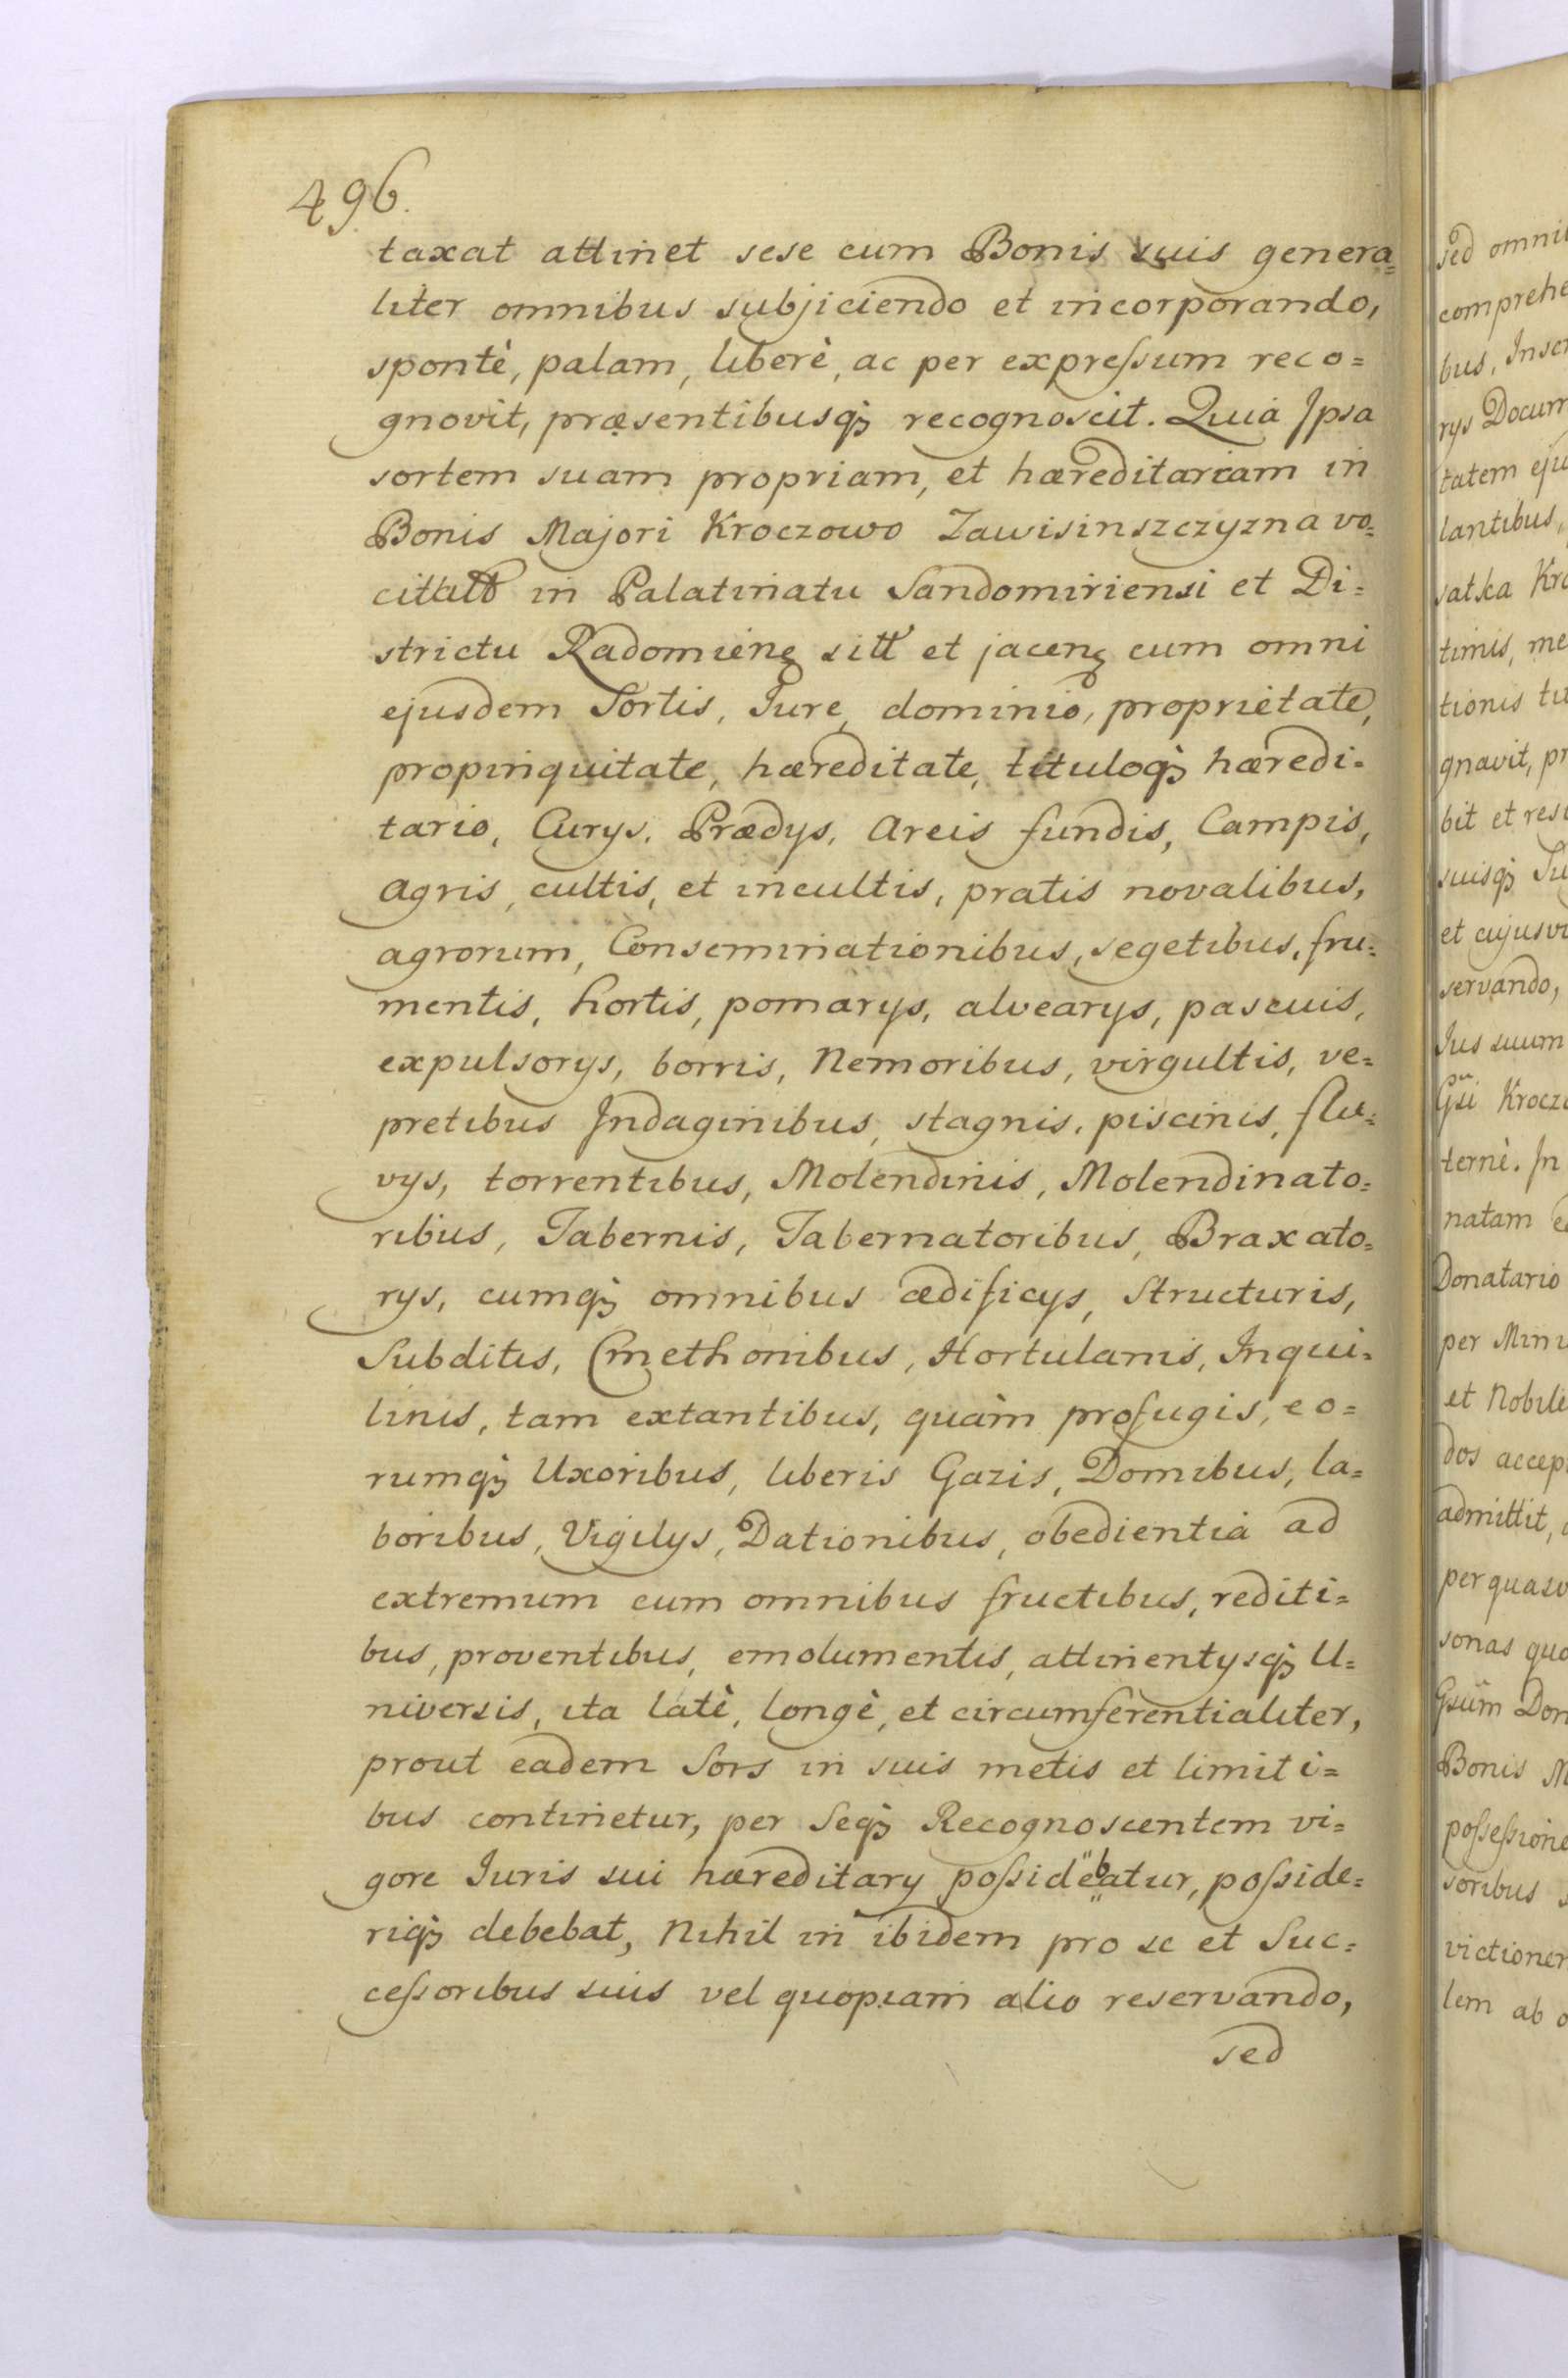 496.
taxat attinet sese cum Bonis suis genera=
liter omnibus subjiciendo et incorporando,
spontè, palam, liberè, ac per expreſsum reco=
gnovit, præsentibusq3 recognoscit. Quia Ipsa
sortem suam propriam, et hæreditariam in
Bonis Majori Kroczowo Zawisinszczyzna vo=
citatt in Palatinatu Sandomiriensi et Di=
strictu Radomieng sitt et jaceng cum omni
ejusdem Sortis, Iure, dominio, proprietate,
propinquitate, hæreditate, tituloq3 hæredi=
tario, Curys, Prædys, Areis fundis, Campis,
Agris, cultis, et incultis, pratis novalibus,
agrorum, Conseminationibus, segetibus, fru=
mentis, hortis, pomarys, alvearys, pascuis,
expulsorys, borris, Nemoribus, virgultis, ve=
pretibus Indaginibus, stagnis, piscinis, flu=
vys, torrentibus, Molendinis, Molendinato=
ribus, Tabernis, Tabernatoribus, Braxato=
rys, cumq3 omnibus ædificys, Structuris,
Subditis, Cmethonibus, Hortulanis, Inqui=
linis, tam extantibus, quàm profugis, eo=
rumq3 Uxoribus, liberis Gazis, Domibus, la=
boribus, Vigilys, Dationibus, obedientiâ ad
extremum cum omnibus fructibus, rediti=
bus, proventibus, emolumentis, attinentysq3 U=
niversis, ita latè, longè, et circumferentialiter,
prout eadem Sors in suis metis et limiti=
bus continetur, per Seq3 Recognoscentem vi=
gore Iuris sui hæreditary poſsidebatur, poſside=
riq3 debebat, Nihil in ibidem pro se et Suc=
ceſsoribus suis vel quopiam alio reservando,
sed
sed omni
comprehe
bus, Inscr
rys Docum
tatem eju
lantibus,
satka Kro
timis, me
tionis tu
gnavit, pr
bit et resi
suisq3 Su
et cujusvi
servando,
Ius suum
Gsi Krocz
ternè. In
natam e
Donatario
per Mini
et Nobile
dos accep
admittit,
per quasv
sonas quo
Gsum Don
Bonis M
poſseſsione
soribus s
victionem
lem ab o